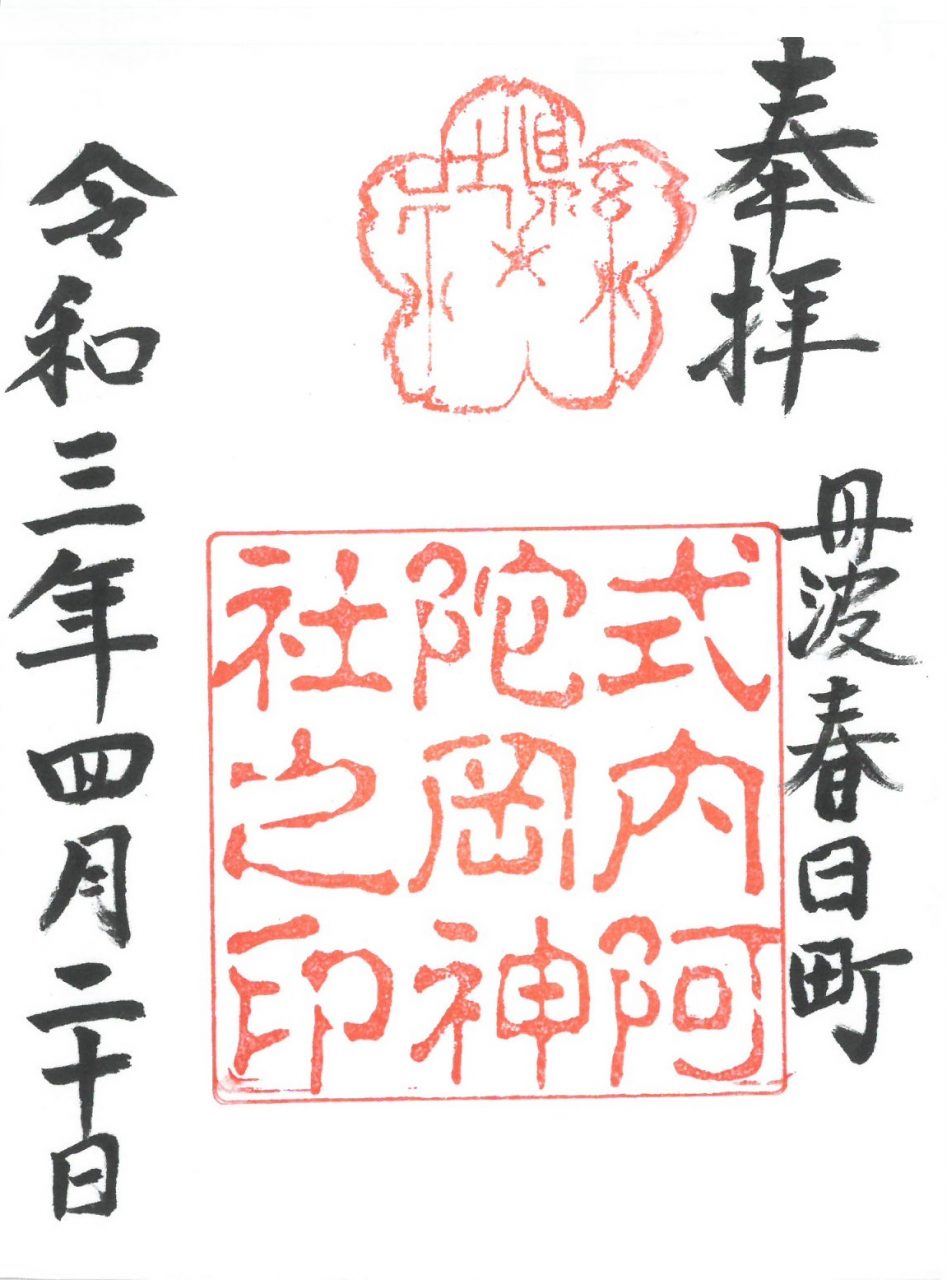 奉拝
丹波春日町
縣社
式内阿
陀岡神
社之印
令和三年四月二十日